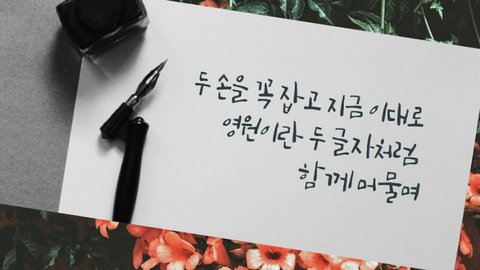 두 손을 꼭 잡고 지금 이대로
영원이란 두 글자처럼
함께 머물며